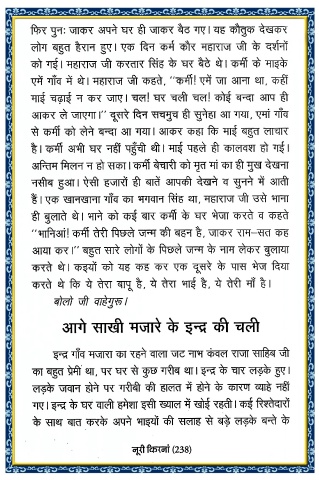 फिर पुनः जाकर अपने घर ही जाकर बैठ गए। यह कौतुक देखकर
लोग बहुत हैरान हुए। एक दिन कर्म कौर महाराज जी के दर्शनों
को गई। महाराज जी करतार सिंह के घर बैठे थे। कर्मी के माइके
एमें गाँव में थे। महाराज जी कहते, “कर्मी! एमें जा आना था, कहीं
माई चढ़ाई न कर जाए। चल! घर चली चल! कोई बन्दा आप ही
आकर ले जाएगा।” दूसरे दिन सचमुच ही सुनेहा आ गया, एमां गाँव
से कर्मी को लेने बन्दा आ गया। आकर कहा कि माई बहुत लाचार
है। कर्मी अभी घर नहीं पहुँची थी। माई पहले ही कालवश हो गई।
अन्तिम मिलन न हो सका। कर्मी बेचारी को मृत मां का ही मुख देखना
नसीब हुआ। ऐसी हजारों ही बातें आपकी देखने व सुनने में आती
हैं। एक खानखाना गाँव का भगवान सिंह था, महाराज जी उसे भाना
ही बुलाते थे। भाने को कई बार कर्मी के घर भेजा करते व कहते
“भानिआं! कर्मी तेरी पिछले जन्म की बहन है, जाकर राम–सत कह
आया कर।” बहुत सारे लोगों के पिछले जन्म के नाम लेकर बुलाया
करते थे। कइयों को यह कह कर एक दूसरे के पास भेज दिया
करते थे कि ये तेरा बापू है, ये तेरा भाई है, ये तेरी माँ है।
बोलो जी वाहेगुरू।
आगे साखी मजारे के इन्द्र की चली
इन्द्र गाँव मजारा का रहने वाला जट नाभ कंवल राजा साहिब जी
का बहुत प्रेमी था, पर घर से कुछ गरीब था। इन्द्र के चार लड़के हुए।
लड़के जवान होने पर गरीबी की हालत में होने के कारण व्याहे नहीं
गए। इन्द्र के घर वाली हमेशा इसी ख्याल में खोई रहती। कई रिश्तेदारों
के साथ बात करके अपने भाइयों की सलाह से बड़े लड़के बन्ते के
नूरी किरनां (238)